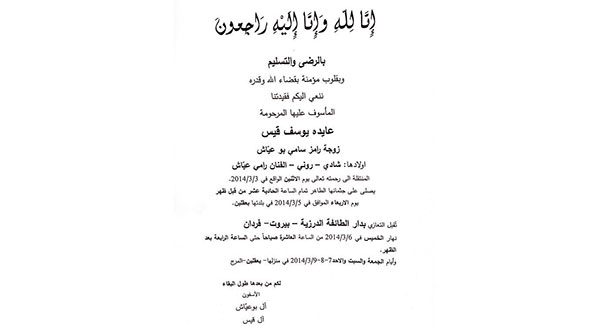 إِنَّا لِلَّهِ وَإِنَّا إِلَيْهِ رَاجِعُونَ
بالرضى والتسليم
وبقلوب مؤمنة بقضاء الله وقدره
ننعي اليكم فقيدتنا
المأسوف عليها المرحومة
عايده يوسف قيس
زوجة رامز سامي بو عيّاش
اولادها: شادي – روني – الفنان رامي عيّاش
المنتقلة الى رحمته تعالى يوم الاثنين الواقع في 2014/3/3.
يصلى على جثمانها الطاهر تمام الساعة الحادية عشر من قبل ظهر
يوم الاربعاء الموافق في 2014/3/5 في بلدتها بعقلين.
تُقبل التعازي بدار الطائفة الدرزية – بيروت- فردان
نهار الخميس في 2014/3/6 من الساعة العاشرة صباحاً حتى الساعة الرابعة بعد
الظهر.
وأيام الجمعة والسبت والاحد7-8-2014/3/9 في منزلها-بعقلين-المرج
لكم من بعدها طول البقاء
الآسفون
آل بوعيّاش
آل قيس